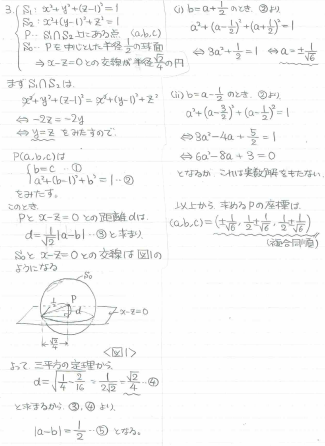 3. S₁: x²+y²+(z-1)²=1
S₂: x²+(y-1)²+z²=1
P… S₁∩S₂上にある点 (a,b,c)
S₀… Pを中心とした半径1/2の球面
⇒ x-z=0との交線が半径√2/4の円
まず S₁∩S₂は、
x²+y²+(z-1)²=x²+(y-1)²+z²
⇔ -2z=-2y
⇔ y=z をみたすので
P(a,b,c)は
b=c …①
a²+(b-1)²+b²=1 …②
をみたす。
このとき、
Pと x-z=0 との距離dは、
d=1/√2|a-b| …③ と求まり、
S₀と x-z=0 との交線は図1の
ようになる
S₀
P
1/2
d
x-z=0
√2/4
<図1>
よって、三平方の定理から、
d=√(1/4-2/16)=1/2√2=√2/4 …④
と求まるから ③,④より、
|a-b|=1/2 …⑤ となる。
(i) b=a+1/2 のとき、②より
a²+(a-1/2)²+(a+1/2)²=1
⇔ 3a²+1/2=1 ⇔ a=±1/√6
(ii) b=a-1/2 のとき、②より、
a²+(a-3/2)²+(a-1/2)²=1
⇔ 3a²-4a+5/2=1
⇔ 6a²-8a+3=0
となるが、これは実数解をもたない
以上から、求めるPの座標は、
(a,b,c)=(±1/√6, 1/2±1/√6, 1/2±1/√6)
(複合同順)